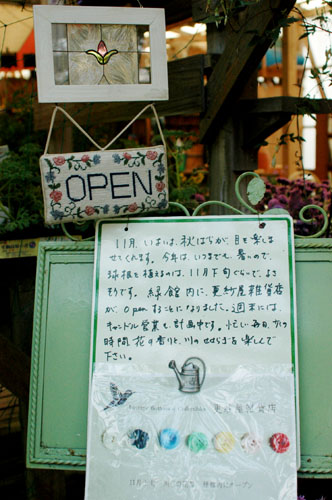 OPEN
11月、いまは、秋ばらが、目を楽しま
せてくれます。今年は、いつまでも、暑いので、
球根を植えるのは、11月下旬ぐらいで、よさ
そうです。緑館内に、更紗屋雑貨店
が、openすることになりました。週末には、
キャンドル営業も、計画中です。忙しい毎日、少しの
時間、花の香りと、川のせせらぎを楽しんで
下さい。
Antique Buttons & Collectibles 更紗屋雑貨店
オープン